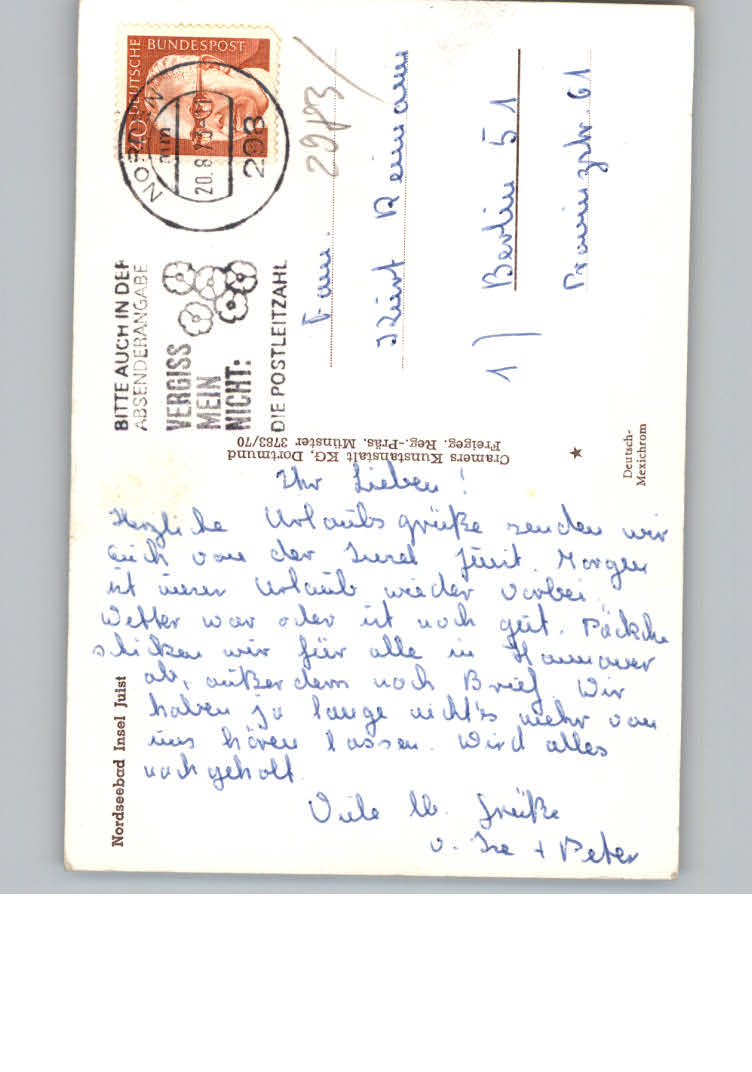 DEUTSCHE BUNDESPOST
40
20.8.73
298
BITTE AUCH IN DER
ABSENDERANGABE
VERGISS
MEIN
NICHT:
DIE POSTLEITZAHL
2983
Fam.
Kurt Reimann
1) Berlin 51
Provinzstr. 61
Cramers Kunstanstalt KG, Dortmund
Freigeg. Reg.-Präs. Münster 3783/70
Deutsch-
Mexichrom
Nordseebad Insel Juist
Ihr Lieben!
Herzliche Urlaubsgrüße senden wir
euch von der Insel Juist. Morgen
ist unser Urlaub wieder vorbei.
Wetter war oder ist noch gut. Päckche
schicken wir für alle in Hannover
ab, außerdem noch Brief. Wir
haben ja lange nicht's mehr von
uns hören lassen. Wird alles
nachgeholt.
Viele lb. Grüße
v. + Peter